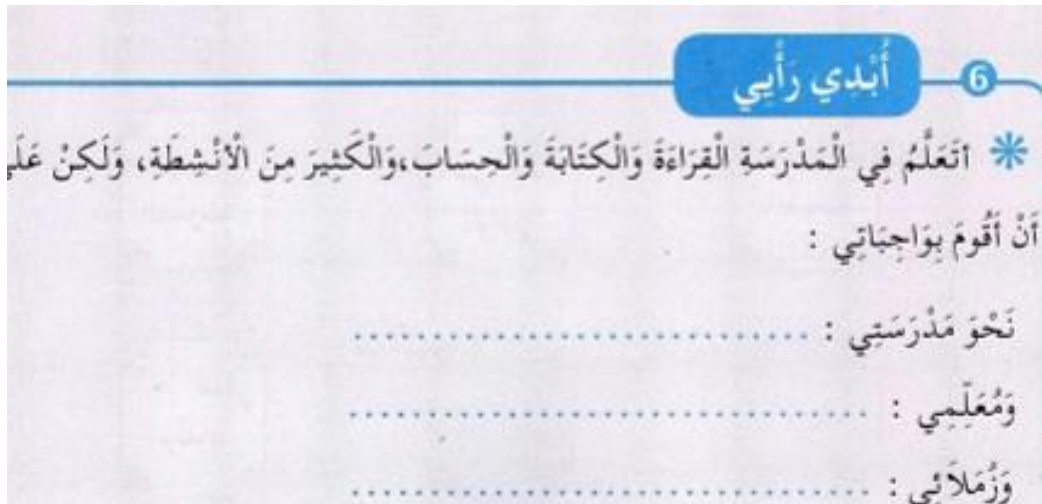 6 أُبْدِي رَأْيِي
* أتَعَلَّمُ فِي الْمَدْرَسَةِ الْقِرَاءَةَ وَالْكِتَابَةَ وَالْحِسَابَ،وَالْكَثِيرَ مِنَ الْأَنْشِطَةِ، وَلَكِنْ عَلَي
أَنْ أَقُومَ بِوَاجِبَاتِي :
نَحْوَ مَدْرَسَتِي : ..............................
وَمُعَلِّمِي : ..................................
وَزُمَلاَئِي : ..................................